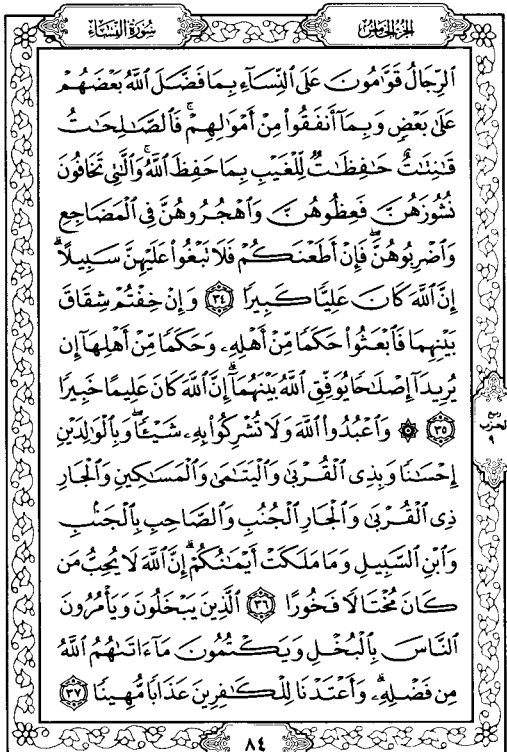 الجزء الخامس
سورة النساء
ٱلرِّجَالُ قَوَّٰمُونَ عَلَى ٱلنِّسَآءِ بِمَا فَضَّلَ ٱللَّهُ بَعْضَهُمْ
عَلَىٰ بَعْضٍ وَبِمَآ أَنفَقُوا۟ مِنْ أَمْوَٰلِهِمْ ۚ فَٱلصَّٰلِحَٰتُ
قَٰنِتَٰتٌ حَٰفِظَٰتٌ لِّلْغَيْبِ بِمَا حَفِظَ ٱللَّهُ ۚ وَٱلَّٰتِى تَخَافُونَ
نُشُوزَهُنَّ فَعِظُوهُنَّ وَٱهْجُرُوهُنَّ فِى ٱلْمَضَاجِعِ
وَٱضْرِبُوهُنَّ ۖ فَإِنْ أَطَعْنَكُمْ فَلَا تَبْغُوا۟ عَلَيْهِنَّ سَبِيلًا ۗ
إِنَّ ٱللَّهَ كَانَ عَلِيًّا كَبِيرًا ٣٤ وَإِنْ خِفْتُمْ شِقَاقَ
بَيْنِهِمَا فَٱبْعَثُوا۟ حَكَمًا مِّنْ أَهْلِهِۦ وَحَكَمًا مِّنْ أَهْلِهَآ إِن
يُرِيدَآ إِصْلَٰحًا يُوَفِّقِ ٱللَّهُ بَيْنَهُمَآ ۗ إِنَّ ٱللَّهَ كَانَ عَلِيمًا خَبِيرًا
٣٥ ۞ وَٱعْبُدُوا۟ ٱللَّهَ وَلَا تُشْرِكُوا۟ بِهِۦ شَيْـًٔا ۖ وَبِٱلْوَٰلِدَيْنِ
إِحْسَٰنًا وَبِذِى ٱلْقُرْبَىٰ وَٱلْيَتَٰمَىٰ وَٱلْمَسَٰكِينِ وَٱلْجَارِ
ذِى ٱلْقُرْبَىٰ وَٱلْجَارِ ٱلْجُنُبِ وَٱلصَّاحِبِ بِٱلْجَنۢبِ
وَٱبْنِ ٱلسَّبِيلِ وَمَا مَلَكَتْ أَيْمَٰنُكُمْ ۗ إِنَّ ٱللَّهَ لَا يُحِبُّ مَن
كَانَ مُخْتَالًا فَخُورًا ٣٦ ٱلَّذِينَ يَبْخَلُونَ وَيَأْمُرُونَ
ٱلنَّاسَ بِٱلْبُخْلِ وَيَكْتُمُونَ مَآ ءَاتَىٰهُمُ ٱللَّهُ
مِن فَضْلِهِۦ ۗ وَأَعْتَدْنَا لِلْكَٰفِرِينَ عَذَابًا مُّهِينًا ٣٧
ربع
الحزب
٩
٨٤